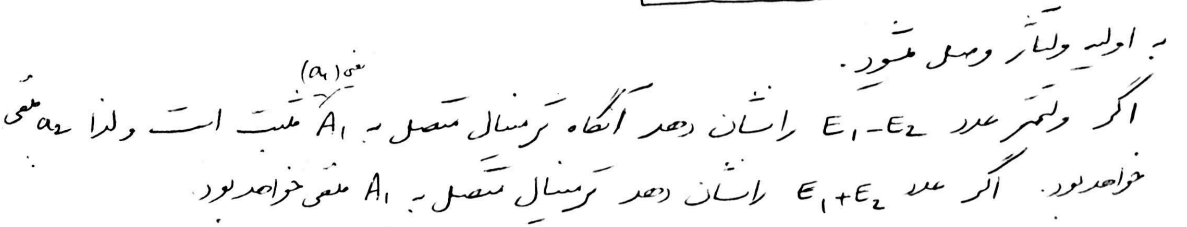 به اولیه ولتاژ وصل میشود.
یعنی (a₁)
اگر ولتمتر عدد E₁-E₂ را نشان دهد آنگاه ترمینال متصل به A₁ مثبت است و لذا a₂ منفی
خواهد بود. اگر عدد E₁+E₂ را نشان دهد ترمینال متصل به A₁ منفی خواهد بود.